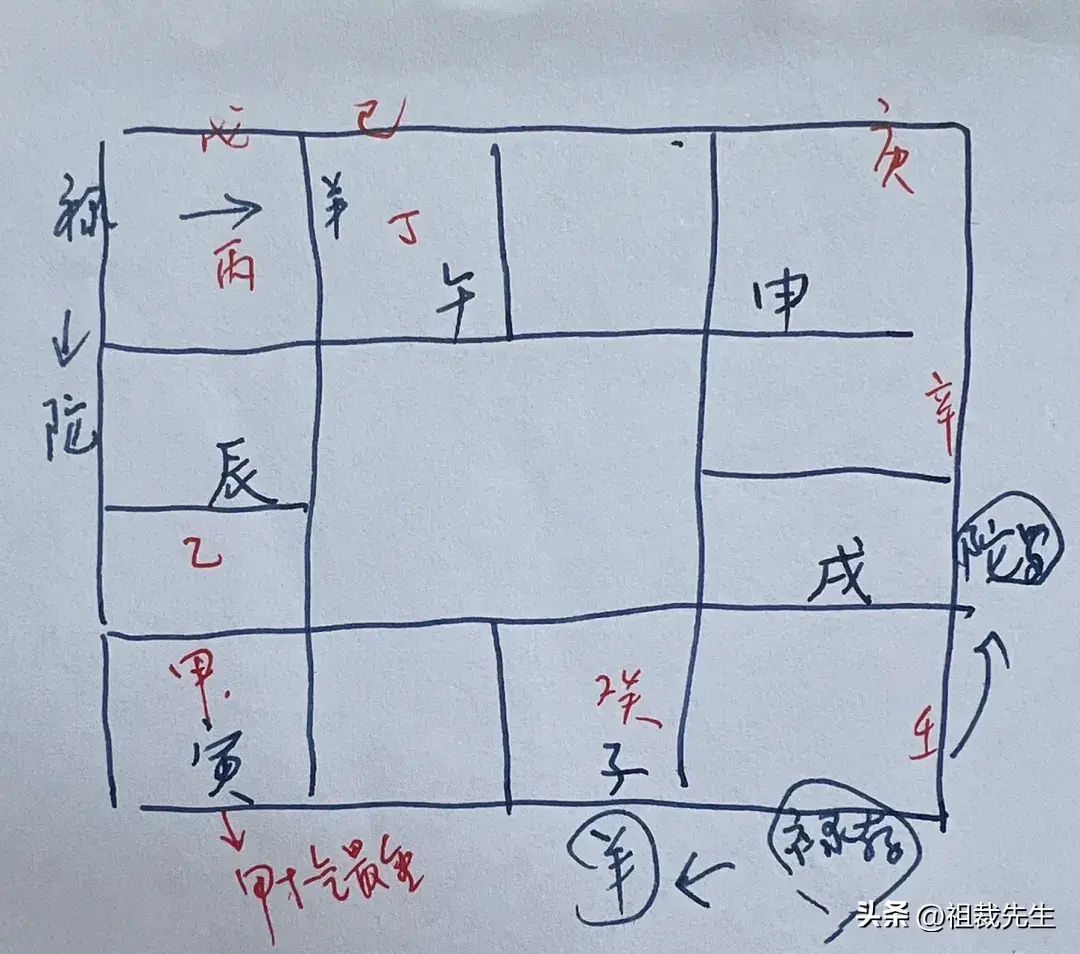 戊 己
庚
禄
羊 丁
丙
午
申
陀
辛
辰
乙
戌
陀罗
甲
癸
壬
寅
子
甲木气最重
羊
禄存
头条 @祖裁先生